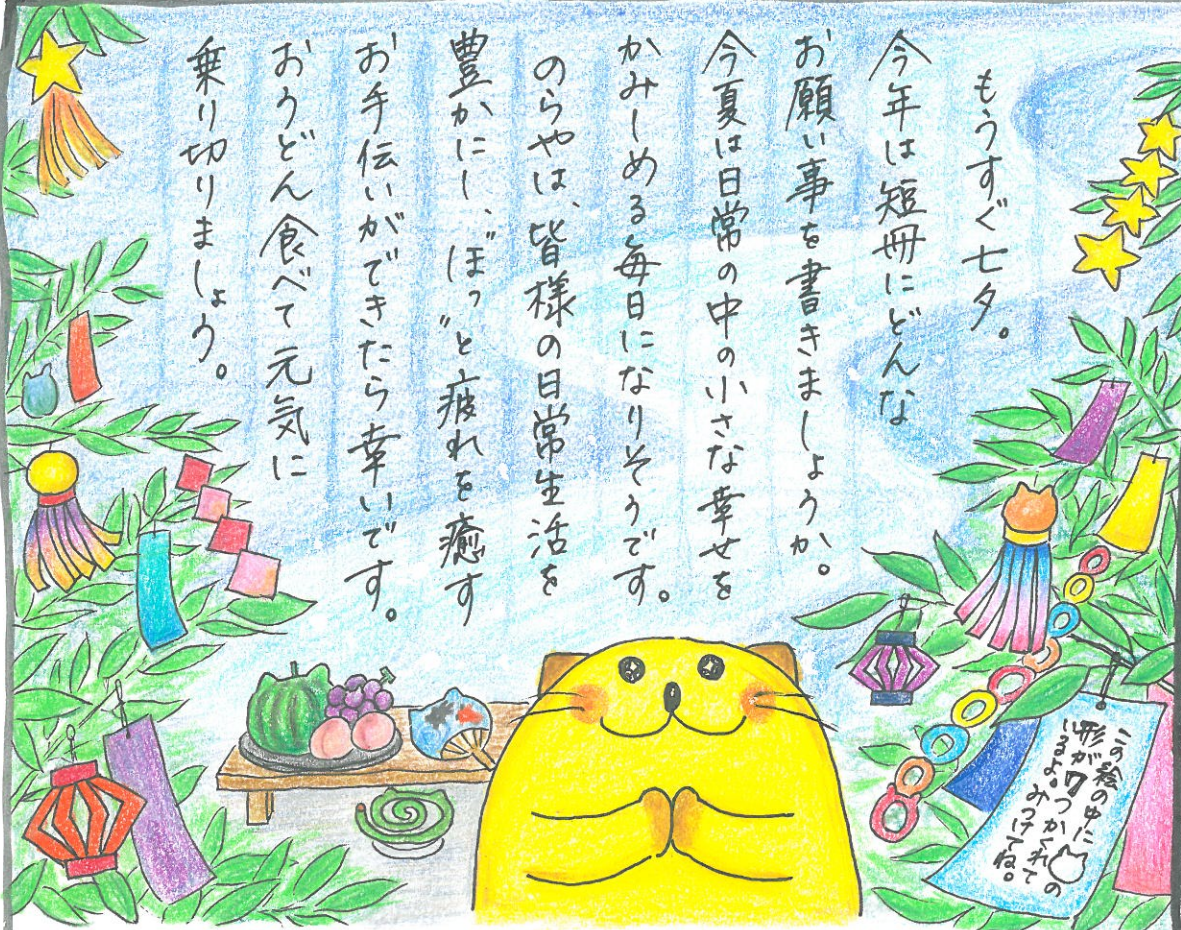 もうすぐ七夕。
今年は短冊にどんな
お願い事を書きましょうか。
今夏は日常の中の小さな幸せを
かみしめる毎日になりそうです。
のらやは、皆様の日常生活を
豊かにし、“ぼっ”と疲れを癒す
お手伝いができたら幸いです。
おうどん食べて元気に
乗り切りましょう。
この絵の中に の
形が7つかくれて
いるよ。みつけてね。